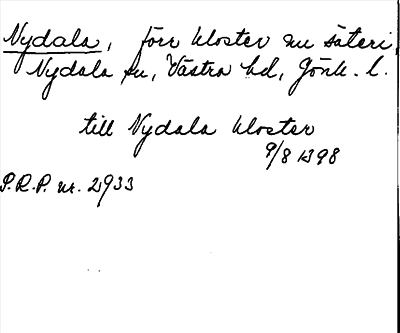 Nydala, förr kloster nu säteri,
Nydala sn, Västra hd, Jönk. l.
till Nydala kloster
9/8 1398
P.R.P. nr. 2933